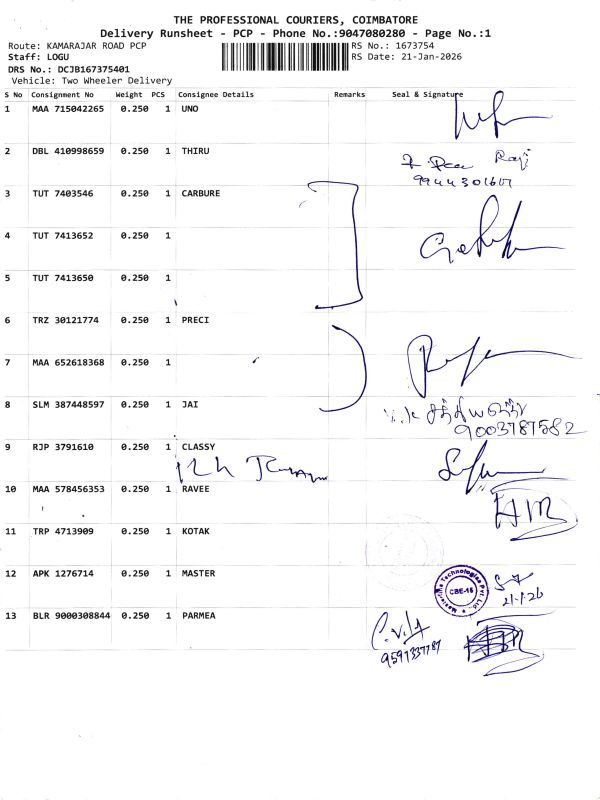 THE PROFESSIONAL COURIERS, COIMBATORE
Delivery Runsheet - PCP - Phone No.:9047080280 - Page No.:1
Route: KAMARAJAR ROAD PCP
RS No.: 1673754
Staff: LOGU
RS Date: 21-Jan-2026
DRS No.: DCJB167375401
Vehicle: Two Wheeler Delivery
S No Consignment No Weight PCS Consignee Details Remarks Seal & Signature
1 MAA 715042265 0.250 1 UNO
2 DBL 410998659 0.250 1 THIRU
3 TUT 7403546 0.250 1 CARBURE
4 TUT 7413652 0.250 1
5 TUT 7413650 0.250 1
6 TRZ 30121774 0.250 1 PRECI
7 MAA 652618368 0.250 1
8 SLM 387448597 0.250 1 JAI
9003787582
9 RJP 3791610 0.250 1 CLASSY
10 MAA 578456353 0.250 1 RAVEE
11 TRP 4713909 0.250 1 KOTAK
12 APK 1276714 0.250 1 MASTER
CBE-15
21-1-26
13 BLR 9000308844 0.250 1 PARMEA
9597337787